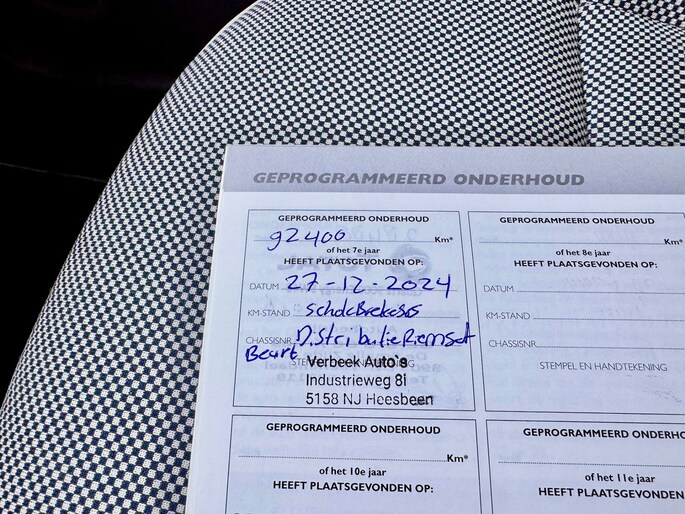 GEPROGRAMMEERD ONDERHOUD
GEPROGRAMMEERD ONDERHOUD
92400 Km*
of het 7e jaar
HEEFT PLAATSGEVONDEN OP:
DATUM 27-12-2024
KM-STAND
CHASSISNR. DistributieRiemset
Beurt
Verbeek Auto's
Industrieweg 8i
5158 NJ Heesbeen
GEPROGRAMMEERD ONDERHOUD
Km*
of het 8e jaar
HEEFT PLAATSGEVONDEN OP:
DATUM
KM-STAND
CHASSISNR.
STEMPEL EN HANDTEKENING
GEPROGRAMMEERD ONDERHOUD
Km*
of het 10e jaar
HEEFT PLAATSGEVONDEN OP:
GEPROGRAMMEERD ONDERHO
of het 11e jaar
HEEFT PLAATSGEVONDEN